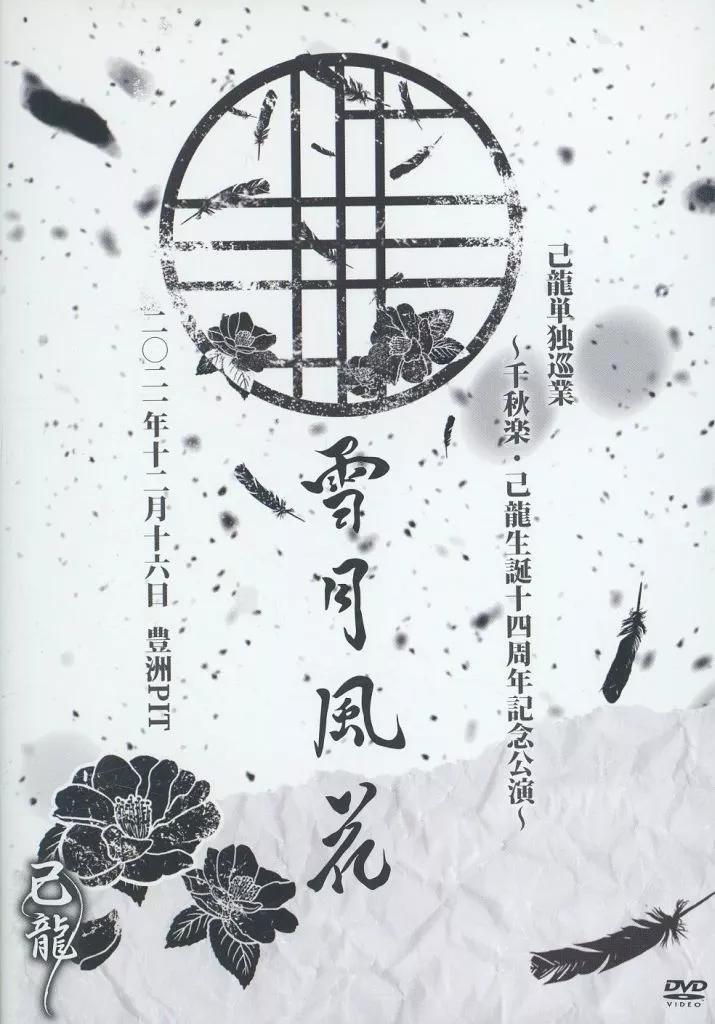 己龍単独巡業
～千秋楽・己龍生誕十四周年記念公演～
雪月風花
二〇二一年十二月十六日 豊洲PIT
己龍
DVD
VIDEO